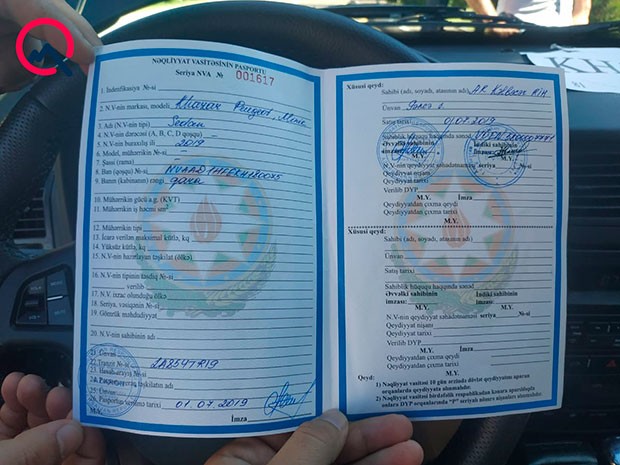 NƏQLİYYAT VASİTƏSİNİN PASPORTU
Seriya NVA № 001617
1. İndentifikasiya №-si
2. N.V-nin markası, modeli Khazar Peugeot
3. Adı (N.V-nin tipi) Sedan
4. N.V-nin dərəcəsi (A, B, C, D qoşqu) —
5. N.V-nin buraxılış ili 2019
6. Model, mühərrikin №-si —
7. Şassi (rama) —
8. Ban (qoşqu) №-si
9. Banın (kabinanın) rəngi qara
10. Mühərrikin gücü a.g. (KVT)
11. Mühərrikin iş həcmi sm³
12. Mühərrikin tipi
13. İcazə verilən maksimal kütlə, kq
14. Yüksüz kütlə, kq
15. N.V-nin hazırlayan təşkilat (ölkə)
16. N.V-nin tipinin təsdiq №-si
verilib
17. N.V. ixrac olunduğu ölkə
18. Seriya, vəsiqənin №-si
19. Gömrük məhdudiyyəti
20. N.V-nin sahibinin adı
21. Ünvan
22. Tranzit №-si 2A8547R19
01.07.2019
M.Y. İmza
Xüsusi qeyd:
Sahibi (adı, soyadı, atasının adı)
Ünvan
Satış tarixi 01.07.2019
Sahiblik hüququ haqqında sənəd
Əvvəlki sahibinin İndiki sahibinin
N.V-nin qeydiyyat şəhadətnaməsi seriya №-si
Qeydiyyat nişanı
Qeydiyyat tarixi
Verilib DYP
M.Y. İmza
Qeydiyyatdan çıxma qeydi
Qeydiyyatdan çıxma tarixi
M.Y.
Xüsusi qeyd:
Sahibi (adı, soyadı, atasının adı)
Ünvan
Satış tarixi
Sahiblik hüququ haqqında sənəd
Əvvəlki sahibinin İndiki sahibinin
imzası: imzası:
N.V-nin qeydiyyat şəhadətnaməsi seriya №-si
Qeydiyyat nişanı
Qeydiyyat tarixi
Verilib DYP
M.Y. İmza
Qeydiyyatdan çıxma qeydi
Qeydiyyatdan çıxma tarixi
M.Y.
Qeyd: 1) Nəqliyyat vasitəsi 10 gün ərzində dövlət qeydiyyatını aparan
orqanlarında qeydiyyata alınmalıdır.
2) Nəqliyyat vasitəsi birdəfəlik respublikadan kənara aparıldıqda
onlara DYP orqanlarında "P" seriyalı nömrə nişanları alınmalıdır.
KH